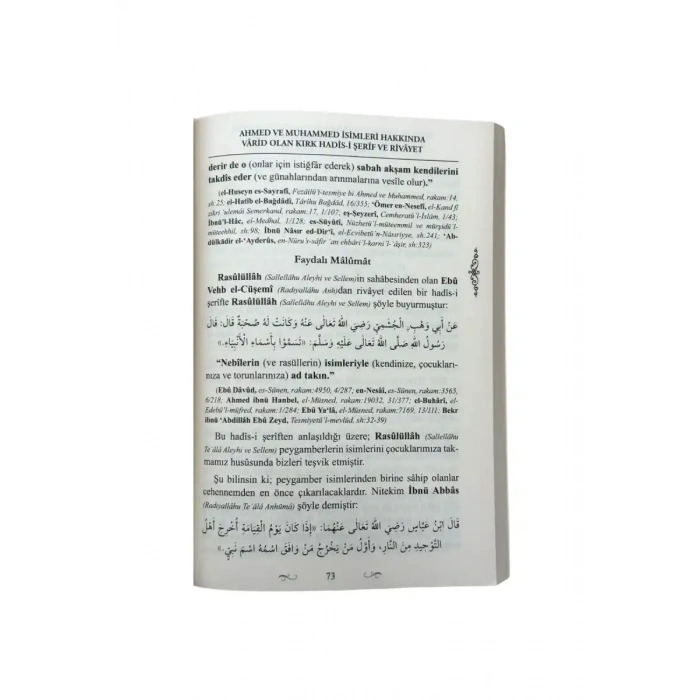 AHMED VE MUHAMMED İSİMLERİ HAKKINDA
VÂRİD OLAN KIRK HADÎS-İ ŞERÎF VE RİVÂYET
derir de o (onlar için istiğfâr ederek) sabah akşam kendilerini
takdîs eder (ve günahlarından arınmalarına vesîle olur)."
(el-Huseyn es-Sayrafî, Fezâilü't-tesmiye bi Ahmed ve Muhammed, rakam:14,
sh:25; el-Hatîb el-Bağdâdî, Târîhu Bağdâd, 16/355; 'Ömer en-Nesefî, el-Kand fî
zikri 'ulemâi Semerkand, rakam:17, 1/107; eş-Şeyzerî, Cemheratü'l-İslâm, 1/43;
İbnü'l-Hâc, el-Medhal, 1/128; es-Süyûtî, Nüzhetü'l-müteemmil ve mürşidü'l-
müteehhil, sh:98; İbnü Nâsır ed-Dir'î, el-Ecvibetü'n-Nâsıriyye, sh:241; 'Ab-
dülkâdir el-'Ayderûs, en-Nûru's-sâfir 'an ehbâri'l-karni'l-'âşir, sh:323)
Faydalı Mâlûmât
Rasûlüllâh (Sallellâhu Aleyhi ve Sellem)in sahâbesinden olan Ebû
Vehb el-Cüşemî (Radıyallâhu Anh)dan rivâyet edilen bir hadîs-i
şerîfte Rasûlüllâh (Sallellâhu Aleyhi ve Sellem) şöyle buyurmuştur:
عَنْ أَبِي وَهْبٍ الْجُشَمِيِّ رَضِيَ اللّٰهُ تَعَالَى عَنْهُ وَكَانَتْ لَهُ صُحْبَةٌ قَالَ: قَالَ
رَسُولُ اللّٰهِ صَلَّى اللّٰهُ تَعَالَى عَلَيْهِ وَسَلَّمَ: «تَسَمَّوْا بِأَسْمَاءِ الْأَنْبِيَاءِ.»
"Nebîlerin (ve rasüllerin) isimleriyle (kendinize, çocukları-
nıza ve torunlarınıza) ad takın."
(Ebû Dâvûd, es-Sünen, rakam:4950, 4/287; en-Nesâî, es-Sünen, rakam:3565,
6/218; Ahmed ibnü Hanbel, el-Müsned, rakam:19032, 31/377; el-Buhârî, el-
Edebü'l-müfred, rakam:1/284; Ebû Ya'lâ, el-Müsned, rakam:7169, 13/111; Bekr
ibnü 'Abdillâh Ebû Zeyd, Tesmiyetü'l-mevlûd, sh:32-39)
Bu hadîs-i şerîften anlaşıldığı üzere; Rasûlüllâh (Sallellâhu
Te'âlâ Aleyhi ve Sellem) peygamberlerin isimlerini çocuklarımıza tak-
mamız husûsunda bizleri teşvik etmiştir.
Şu bilinsin ki; peygamber isimlerinden birine sâhip olanlar
cehennemden en önce çıkarılacaklardır. Nitekim İbnü Abbâs
(Radıyallâhu Te'âlâ Anhümâ) şöyle demiştir:
قَالَ ابْنُ عَبَّاسٍ رَضِيَ اللّٰهُ تَعَالَى عَنْهُمَا: «إِذَا كَانَ يَوْمُ الْقِيَامَةِ أُخْرِجَ أَهْلُ
التَّوْحِيدِ مِنَ النَّارِ، وَأَوَّلُ مَنْ يَخْرُجُ مَنْ وَافَقَ اسْمُهُ اسْمَ نَبِيٍّ.»
73